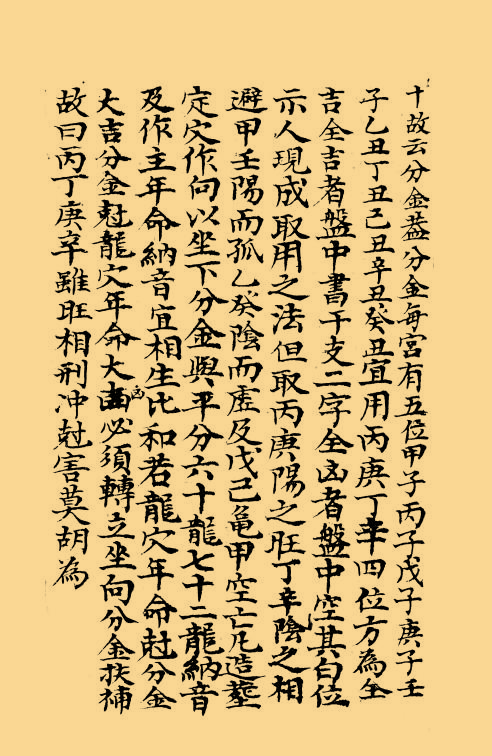 十故云分金葢分金每宮有五位甲子丙子戊子庚子壬
子乙丑丁丑己丑辛丑癸丑宜用丙庚丁辛四位方為全
吉全吉者盤中書干支二字全凶者盤中空其白位
示人現成取用之法但取丙庚陽之旺丁辛陰之相
避甲壬陽而孤乙癸陰而虛及戊己龜甲空亡凡造塟
定穴作向以坐下分金與平分六十龍七十二龍納音
及作主年命納音宜相生比和若龍穴年命尅分金
大吉分金尅龍穴年命大凶必須轉立坐向分金扶補
故曰丙丁庚辛雖旺相刑冲尅害莫胡為